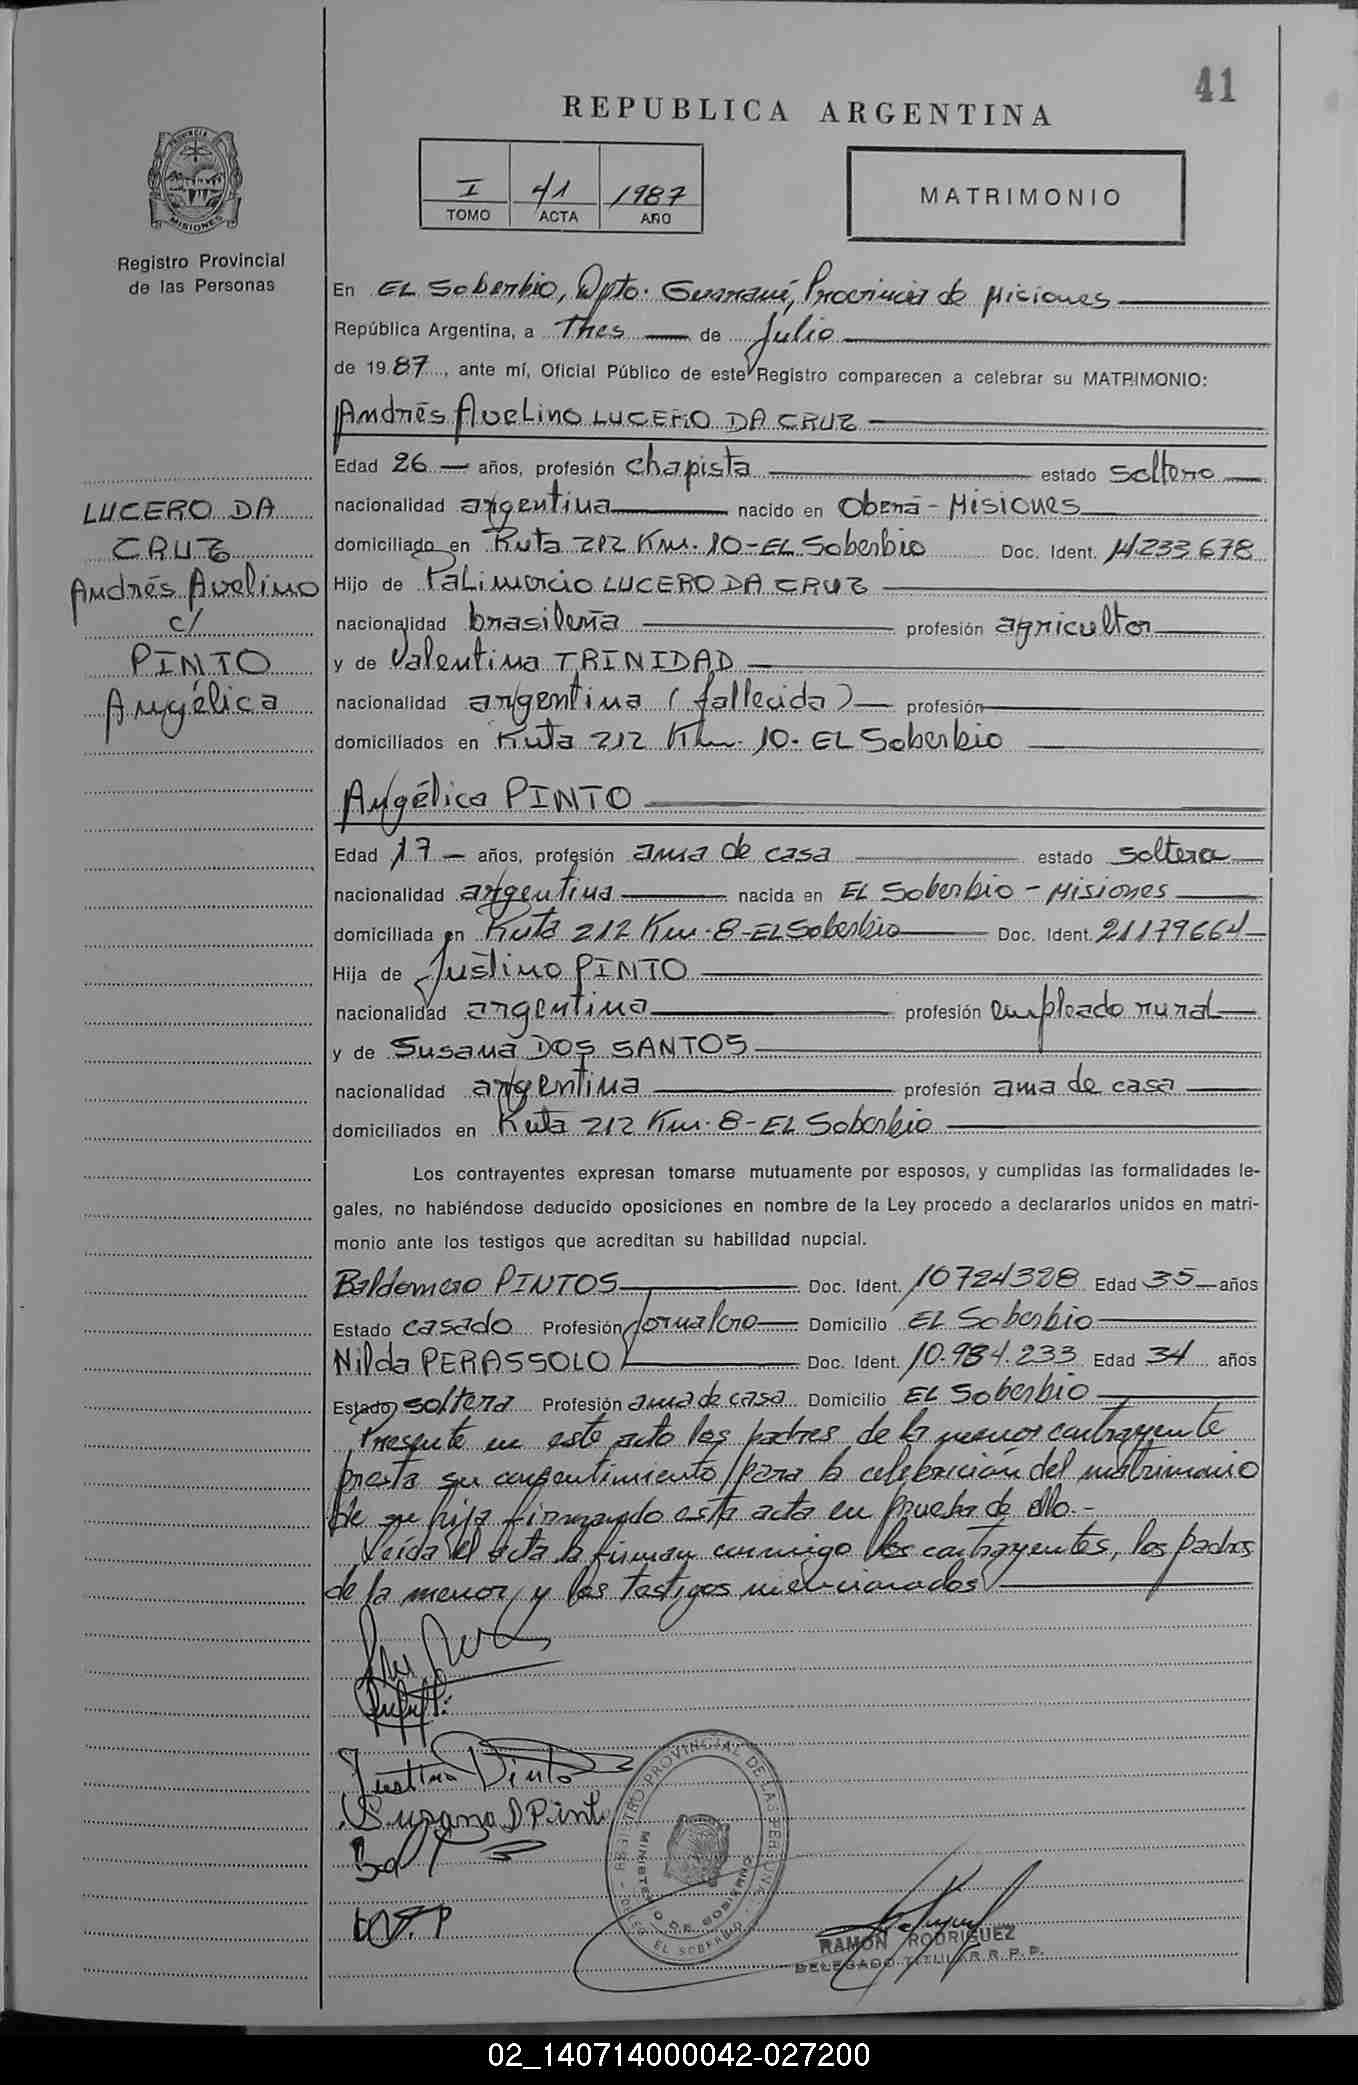 41
REPUBLICA ARGENTINA
I 41 1987
TOMO ACTA AÑO
MATRIMONIO
PROVINCIA
MISIONES
Registro Provincial
de las Personas
LUCERO DA
CRUZ
Andrés Avelino
c/
PINTO
Angélica
En EL Soberbio, Dpto. Guaraní, Provincia de Misiones
República Argentina, a Tres de Julio
de 1987, ante mí, Oficial Público de este Registro comparecen a celebrar su MATRIMONIO:
Andrés Avelino LUCERO DA CRUZ
Edad 26 años, profesión chapista estado soltero
nacionalidad argentina nacido en Oberá - Misiones
domiciliado en Ruta 212 Km. 10 - EL Soberbio Doc. Ident. 14.233.678
Hijo de LUCERO DA CRUZ
nacionalidad brasileña profesión agricultor
y de Valentina TRINIDAD
nacionalidad argentina (fallecida) profesión
domiciliados en Ruta 212 Km. 10. EL Soberbio
Angélica PINTO
Edad 17 años, profesión ama de casa estado soltera
nacionalidad argentina nacida en EL Soberbio - Misiones
domiciliada en Ruta 212 Km. 8 - EL Soberbio Doc. Ident. 21179664
Hija de Justino PINTO
nacionalidad argentina profesión empleado rural
y de Susana DOS SANTOS
nacionalidad argentina profesión ama de casa
domiciliados en Ruta 212 Km. 8 - EL Soberbio
Los contrayentes expresan tomarse mutuamente por esposos, y cumplidas las formalidades le-
gales, no habiéndose deducido oposiciones en nombre de la Ley procedo a declararlos unidos en matri-
monio ante los testigos que acreditan su habilidad nupcial.
Baldomero PINTOS Doc. Ident. 10724328 Edad 35 años
Estado casado Profesión Jornalero Domicilio EL Soberbio
Nilda PERASSOLO Doc. Ident. 10.984.233 Edad 34 años
Estado soltera Profesión ama de casa Domicilio EL Soberbio
Presente en este acto los padres de la menor contrayente
presta su consentimiento para la celebración del matrimonio
de su hija firmando esta acta en prueba de ello.-
Leída el acta la firman conmigo los contrayentes, los padres
de la menor, y los testigos mencionados
Justino Pinto
Susana D Pinto
N.P
REGISTRO PROVINCIAL DE LAS PERSONAS
MINISTERIO DE GOBIERNO
EL SOBERBIO
RAMON RODRIGUEZ
DELEGADO TITULAR R. P. P.
02_140714000042-027200